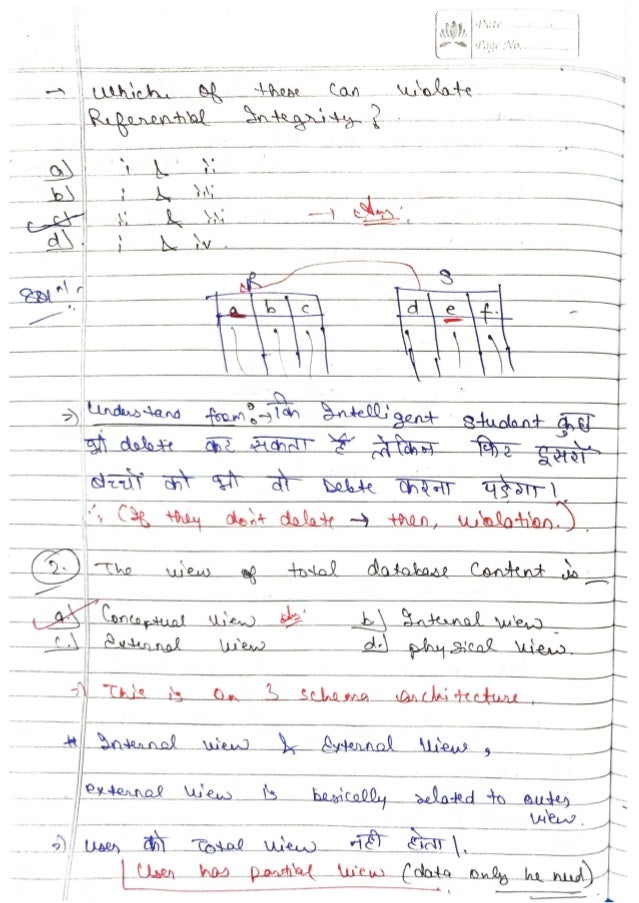 Date
Page No.
→ Which of these can violate
Referential Integrity?
a) i & ii
b) i & iii
c) ii & iii → Ans:
d) i & iv.
Soln:
R S
a b c d e f
⇒ Understand from:→ कि Intelligent student कुछ
भी delete कर सकता है लेकिन फिर दूसरों
बच्चों को भी वो Delete करना पड़ेगा।
∵ (If they don't delete → then, violation.)
2. The view of total database Content is
a) Conceptual view Ans: b) Internal view
c.) External view d.) physical view.
⇒ This is on 3 schema architecture.
* Internal view & External View,
external view is besically related to outer
view.
⇒ User को Total view नहीं होता।
User has partial view (data only he need)